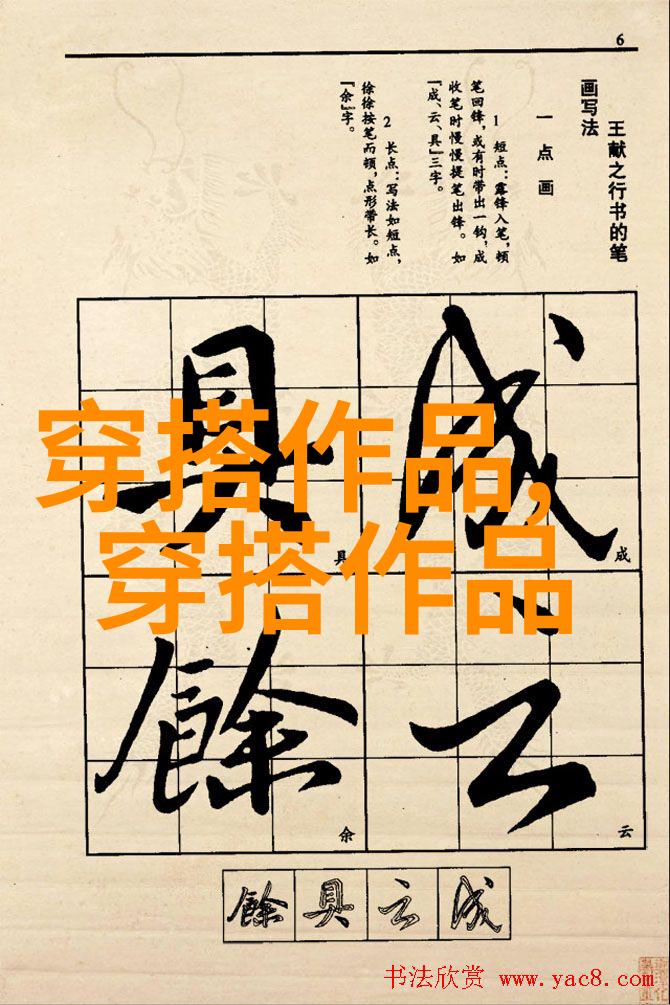 6
王献之行书的笔
画写法
一点画
1 短点：露锋入笔，顿
笔回锋，或有时带出一钩，成
收笔时慢慢提笔出锋。如
『成、云、具』三字。
2 长点：写法如短点，
徐徐按笔而顿，点形带长。如
『余』字。
成
具
成
具
穿搭作品，
穿搭作品
云
餘
云
余
餘具云成
书法欣赏 www.yac8.com